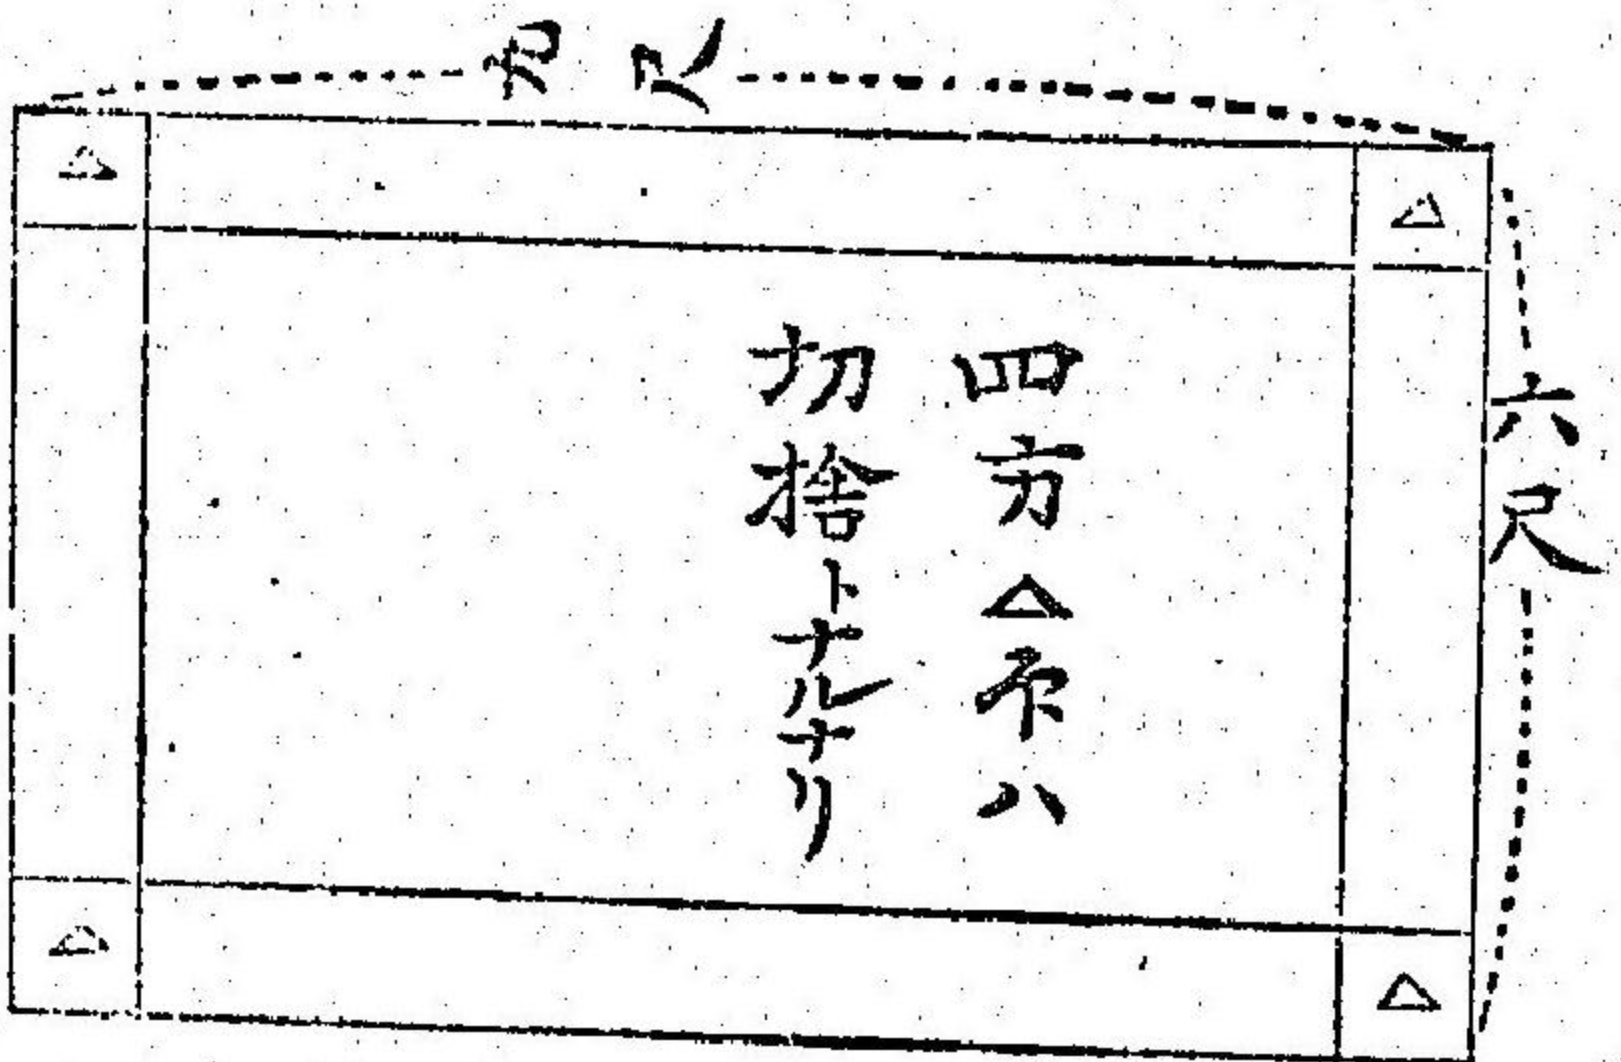 六尺
四方△印ハ
切捨トナルナリ